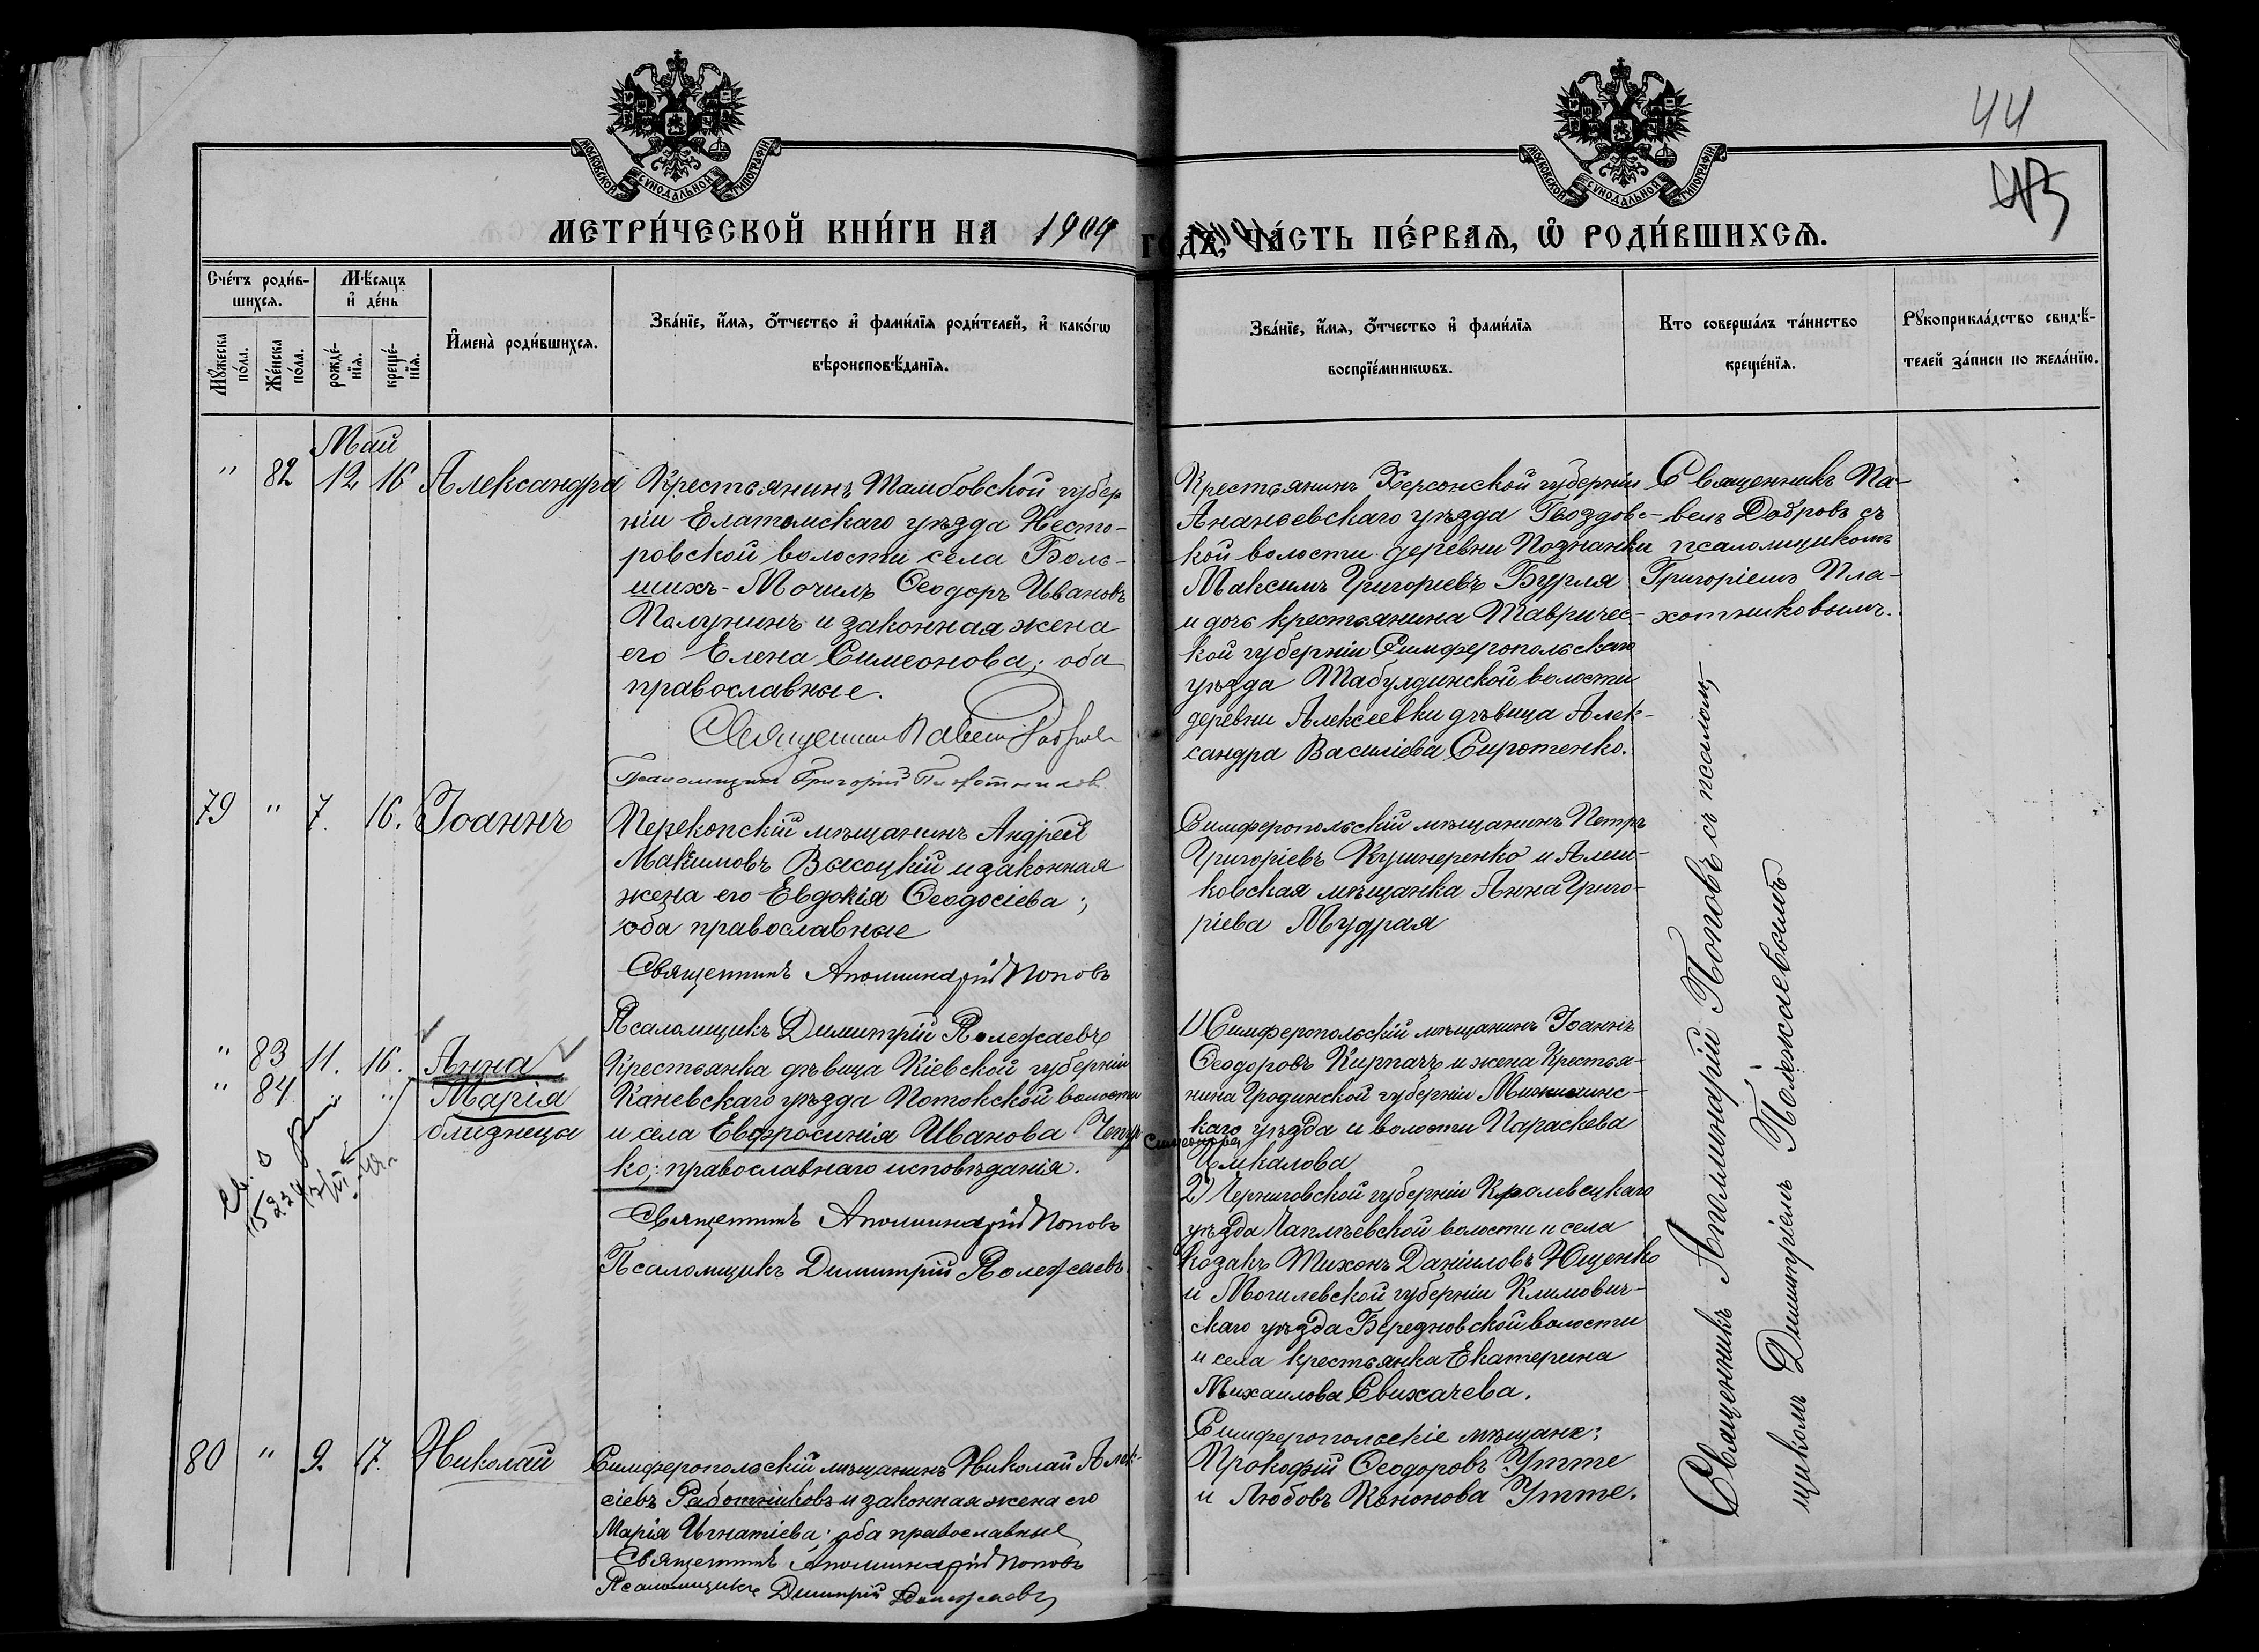 МОСКОВСКОЙ СѴНОДАЛЬНОЙ ТИПОГРАФІИ
МОСКОВСКОЙ СѴНОДАЛЬНОЙ ТИПОГРАФІИ
44
МЕТРИ́ЧЕСКОЙ КНИ́ГИ НА 1909 ГО́ДЪ, ЧА́СТЬ ПЕ́РВАѦ, Ѡ҆ РОДИ́ВШИХСѦ.
Сче́тъ роди́в-
шихсѧ.
Мѣ́сѧцъ
и҆ де́нь
Мꙋ́жеска
по́ла.
Же́нска
по́ла.
рожде́-
нїѧ.
креще́-
нїѧ.
И҆менà роди́вшихсѧ.
Зва́нїе, и҆́мѧ, ѻ҆́тчество и҆ фами́лїѧ роди́телей, и҆ како́гѡ
вѣроисповѣ́данїѧ.
Зва́нїе, и҆́мѧ, ѻ҆́тчество и҆ фами́лїѧ
воспрїе́мникѡвъ.
Кто соверша́лъ та́инство
креще́нїѧ.
Рꙋкоприкла́дство свидѣ́-
телей за́писи по жела́нїю.
Май
" 82 12 16 Александра
Крестьянинъ Тамбовской губер
ніи Елатомскаго уѣзда Несто-
ровской волости села Боль-
шихъ-Мочилъ Ѳеодоръ Ивановъ
Палунинъ и законная жена
его Елена Симеонова; оба
православные.
Священникъ Павелъ Добровъ
Псаломщикъ Григорій Плахотниковъ
Крестьянинъ Херсонской губерніи
Ананьевскаго уѣзда Гвоздовс-
кой волости деревни Познанки
Максимъ Григоріевъ Бурля
и дочь крестьянина Тавричес-
кой губерніи Симферопольскаго
уѣзда Табулдинской волости
деревни Алексеевки дѣвица Алек-
сандра Василіева Сиротенко.
Священникъ Па-
велъ Добровъ съ
псаломщикомъ
Григоріемъ Пла-
хотниковымъ.
79 " 7. 16. Іоаннъ
Перекопскій мѣщанинъ Андрей
Макимовъ Высоцкій и законная
жена его Евдокія Ѳеодосіева;
оба православные
Священникъ Аполлинарій Поповъ
Псаломщикъ Димитрій Полежаевъ
Симферопольскій мѣщанинъ Петръ
Григоріевъ Кушнеренко и Алеш-
ковская мѣщанка Анна Григо-
ріева Мудрая
" 83 11. 16. Анна
" 84 " " Марія
близнецы
Крестьянка дѣвица Кіевской губерніи
Каневскаго уѣзда Потокской волости
и села Евфросинія Иванова Чепур
ко; православнаго исповѣданія.
Священникъ Аполлинарій Поповъ
Псаломщикъ Димитрій Полежаевъ.
1) Симферопольскій мѣщанинъ Іоаннъ
Ѳеодоровъ Кирпачъ и жена крестья-
нина Гродинской губерніи
каго уѣзда и волости Параскева
Цыкалова
2) Черниговской губерніи Кролевецкаго
уѣзда Чаплѣевской волости и села
козакъ Тихонъ Даніиловъ Ющенко
и Могилевской губерніи Климович-
скаго уѣзда Березновской волости
и села крестьянка Екатерина
Михаилова Свихачева.
80 " 9. 17. Николай
Симферопольскій мѣщанинъ Николай Алек-
сіевъ Работниковъ и законная жена его
Марія Игнатіева; оба православные
Священникъ Аполлинарій Поповъ
Псаломщикъ Димитрій Полежаевъ
Симферопольскіе мѣщане:
Прокофій Ѳеодоровъ Утте
и Любовь Кононова Утте.
Священникъ Аполлинарій Поповъ съ псалом-
щикомъ Димитріемъ Полежаевымъ